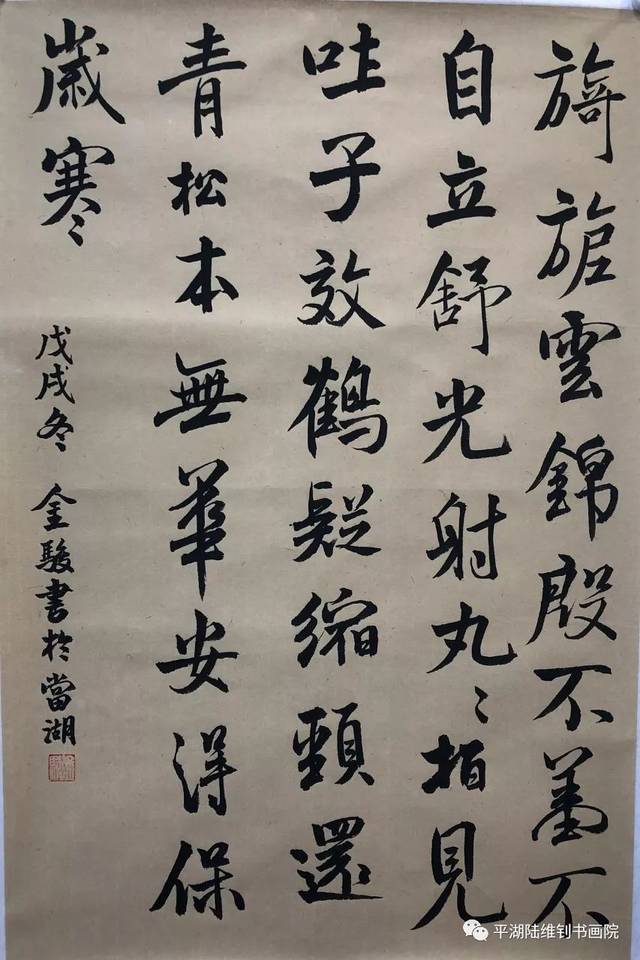 旖旎雲錦殷不羞不
自立舒光射丸〻柏見
吐子效鶴疑縮頸還
青松本無華安得保
歲寒
戊戌冬 金駿書於當湖
平湖陆维钊书画院